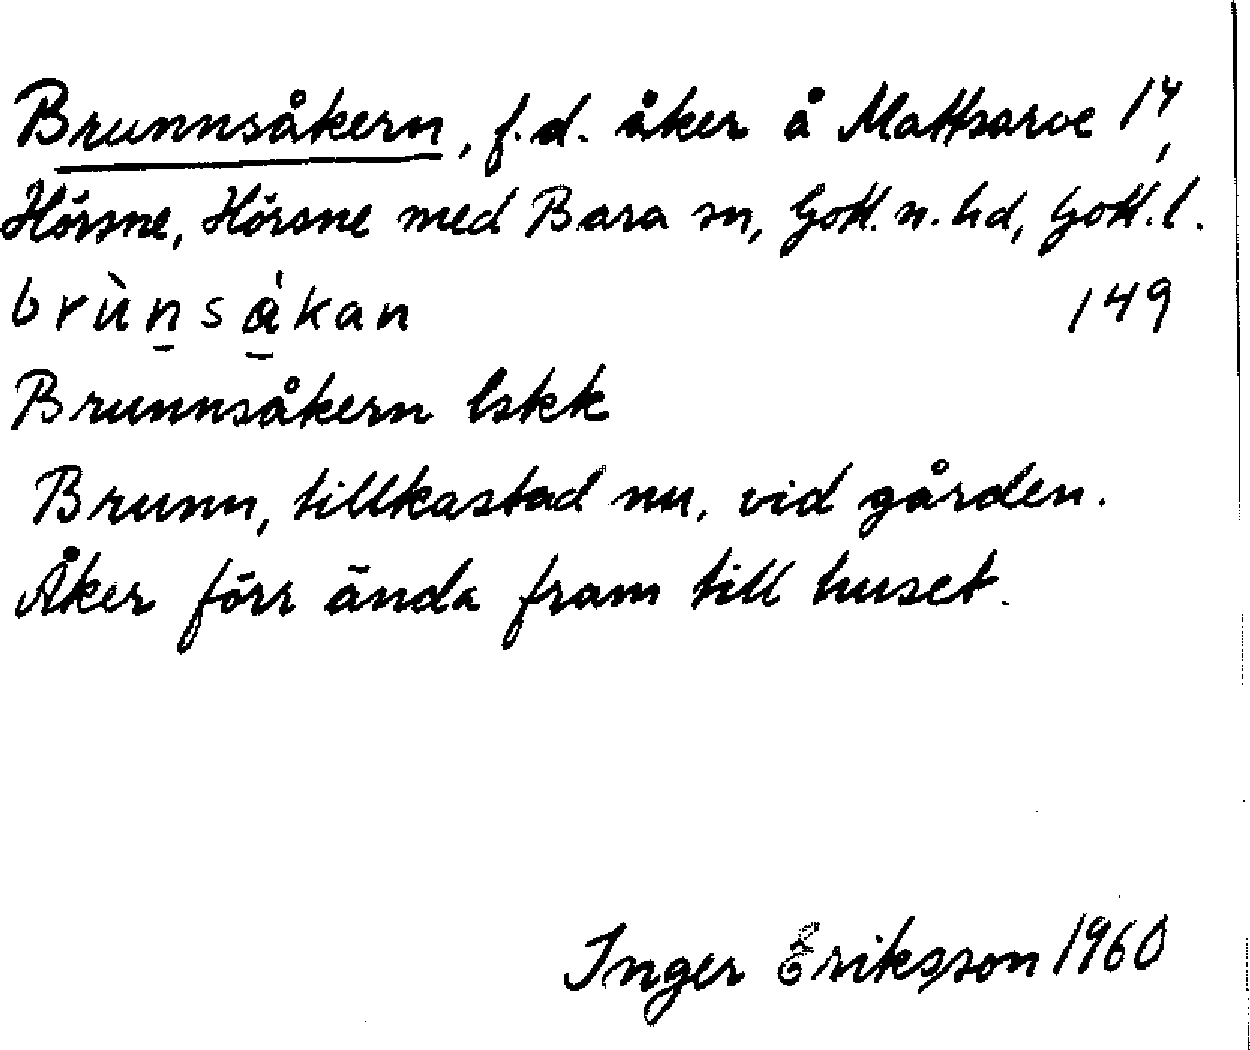 Brunnsåkern, f.d. åker å Mattsarve 1⁴,
Hörsne, Hörsne med Bara sn, Gotl. n. hd, Gotl. l.
brùn̠sá̠kan 149
Brunnsåkern lskk
Brunn, tillkastad nu, vid gården.
Åker förr ända fram till huset.
Inger Eriksson 1960